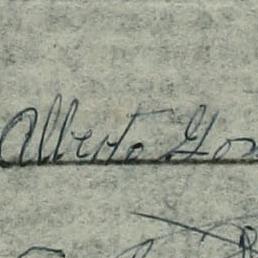 Alberto Gon